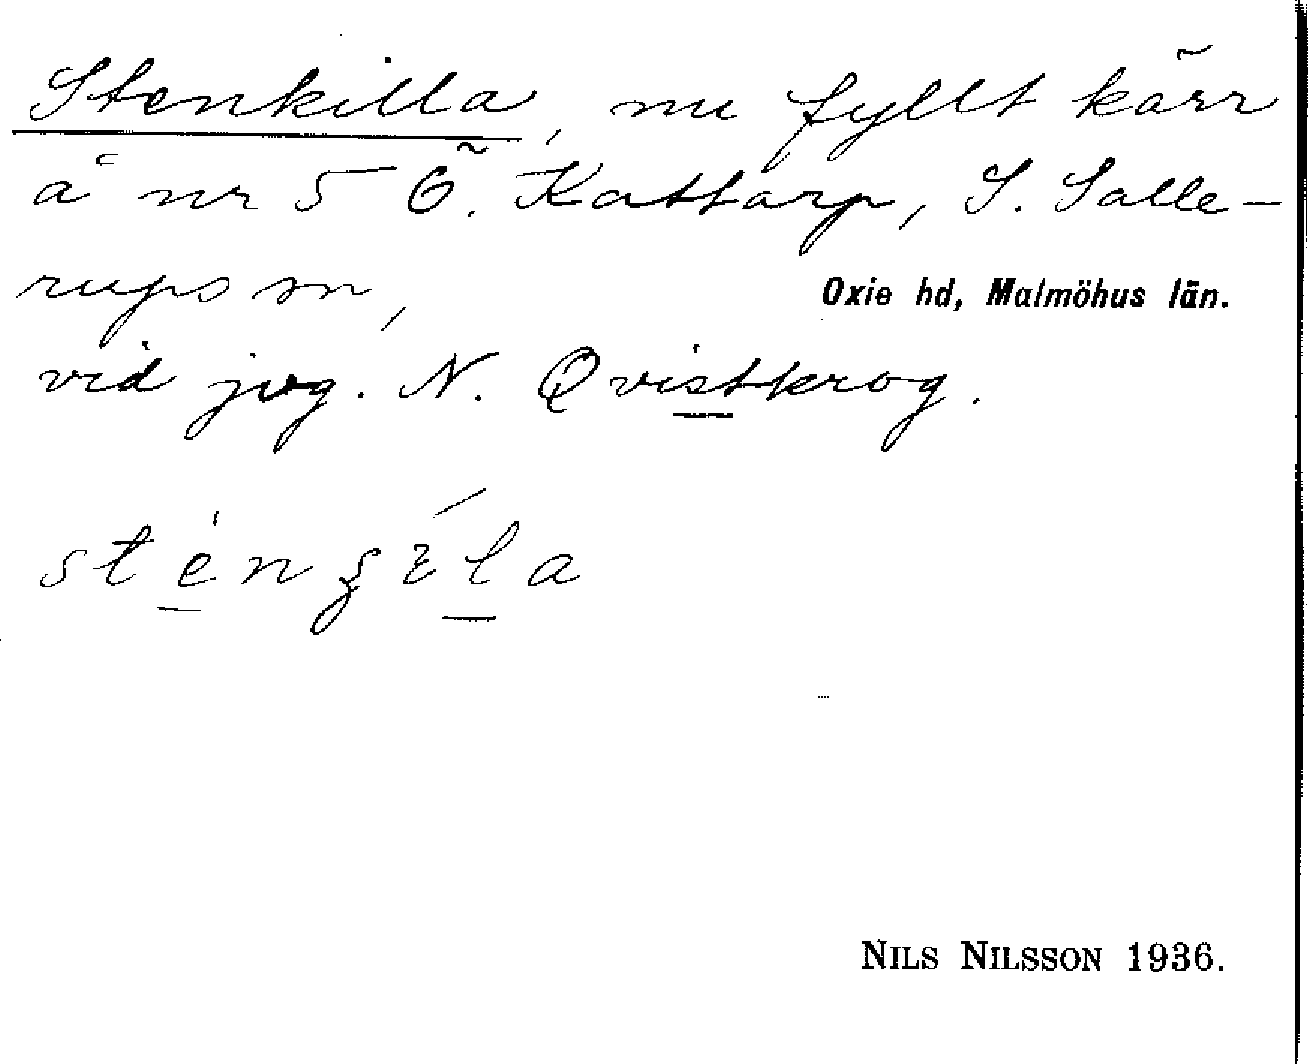 Stenkilla, nu fyllt kärr
å nr 5 Ö. Kattarp, S. Salle-
rups sn,
Oxie hd, Malmöhus län.
vid jvg. N. Qvistkrog.
NILS NILSSON 1936.